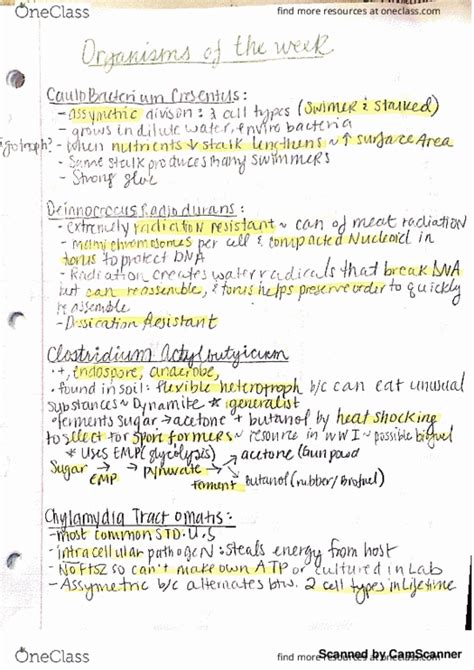 OneClass
find more resources at oneclass.com
Organisms of the week
CauloBacterium Cresentus:
- assymetric divison: 2 cell types (swimer & stalked)
- grows in dilute water, enviro bacteria
- when nutrients ↓ stalk lengthens ~ ↑ surface Area
- Same stalk produces many swimmers
- Strong glue
Deinococcus Radiodurans:
- extremely radiation resistant ~ can of meat radiation
- many chromosomes per cell & compacted Nucleoid in
torus to protect DNA
- Radiation creates water radicals that break DNA
but can reassemble, & torus helps preserve order to quickly
reassemble
- Dissication Resistant
Clostridium Actylbutyicium
· +, endospore, anaerobe,
· found in soil: flexible heterotroph b/c can eat unusual
substances ~ Dynamite * generalist
· ferments sugar → acetone + butanol by heat shocking
to select for spore formers ~ resource in WWI ~ possible biofuel
* Uses EMP (glycolysis) → acetone (Gun powd
Sugar → EMP → pyruvate → ferment → Butanol (rubber/Biofuel)
Chylamydia Tractomatis:
- most common STD: U.S
- intracellular pathogen: steals energy from host
- No FtsZ so can't make own ATP or cultured in Lab
- Assymetric b/c alternates btw. 2 cell types in Lifetime
Scanned by CamScanner
OneClass
find more resources at oneclass.com